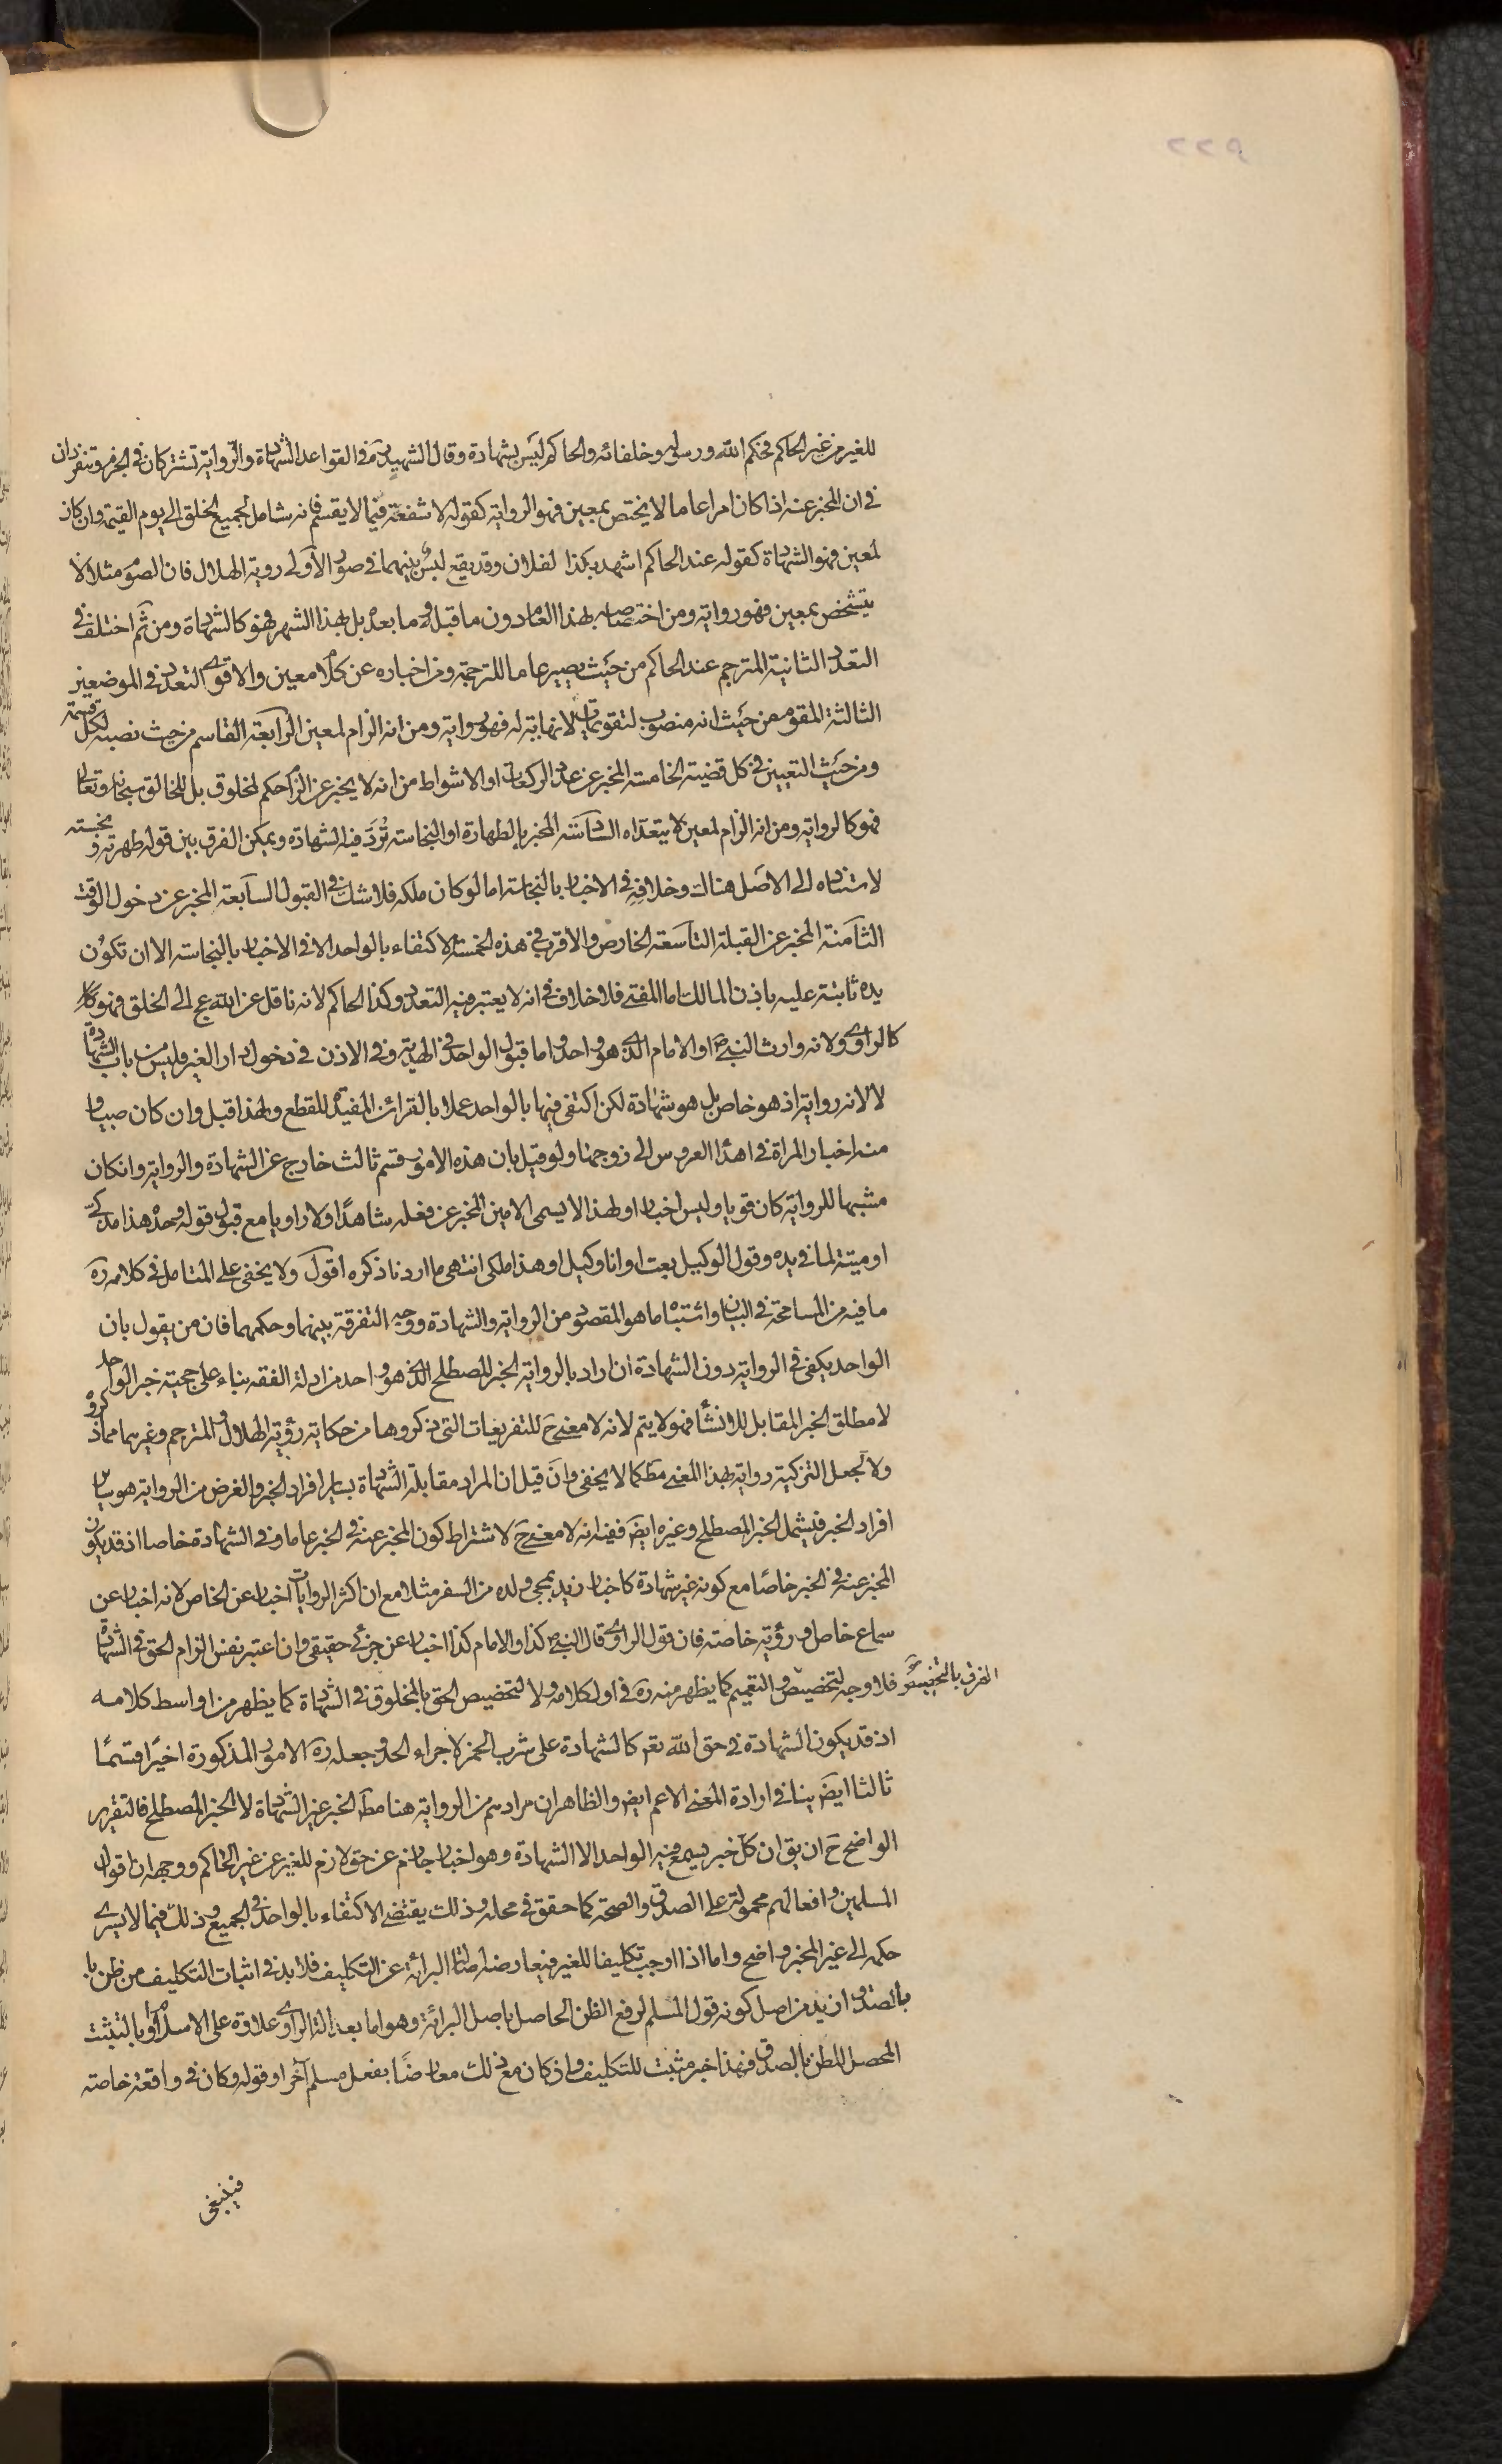 ٢٢٩
للغير من غير الحاكم فحكم الله ورسوله وخلفائه والحاكم ليس بشهادة وقال الشهيد ره فى القواعد الشهادة والرواية تشتركان فى الجزم وتنفردان
فى ان المخبر عنه اذا كان امرا عاما لا يختص بمعين فهو الرواية كقوله لا شفعة فيما لا يقسم فانه شامل لجميع الخلق الى يوم القيمة وان كان
لمعين فهو الشهادة كقوله عند الحاكم اشهد بكذا لفلان وقد يقع لبس بينهما فى صور الاولى روية الهلال فان الصوم مثلا لا
يتشخص بمعين فهو رواية ومن اختصاصه بهذا العام دون ما قبله وما بعده بل بهذا الشهر فهو كالشهادة ومن ثم اختلف فى
التعدد الثانية المترجم عند الحاكم من حيث يصير عاما للترجمة ومن اخباره عن كلام معين والاقوى التعدد فى الموضعين
الثالثة المقوم من حيث انه منصوب لتقويمات لا نهاية له فهو رواية ومن انه الزام لمعين الرابعة القاسم من حيث نصبه لكل قسمة
ومن حيث التعيين فى كل قضية الخامسة المخبر عن عدد الركعات او الاشواط من انه لا يخبر عن الزام حكم لمخلوق بل للخالق سبحانه وتعالى
فهو كالرواية ومن انه الزام لمعين لا يتعداه السادسة المخبر بالطهارة او النجاسة تردد فيه الشهادة ويمكن الفرق بين قوله طهرته ونجسته
لاستناده الى الاصل هناك وخلافه فى الاخبار بالنجاسة اما لو كان ملكه فلا شك فى القبول السابعة المخبر عن دخول الوقت
الثامنة المخبر عن القبلة التاسعة الخارص والاقرب فى هذه الخمسة الاكتفاء بالواحد الا فى الاخبار بالنجاسة الا ان تكون
يده ثابتة عليه باذن المالك اما المفتى فلا خلاف فى انه لا يعتبر فيه التعدد وكذا الحاكم لانه ناقل عن الله عج الى الخلق فهو كالر
كالراوى ولانه وارث النبى ص او الامام الذى هو واحد واما قبول الواحد فى الهدية وفى الاذن فى دخول دار الغير فليس من باب الشهادة
لا لانه رواية اذ هو خاص بل هو شهادة لكن اكتفى فيها بالواحد عملا بالقرائن المفيدة للقطع ولهذا قبل وان كان صبيا و
منه اخبار المراة فى اهداء العروس الى زوجها ولو قيل بان هذه الامور قسم ثالث خارج عن الشهادة والرواية وان كان
مشبها للرواية كان قويا وليس اخبارا ولهذا لا يسمى الامين المخبر عن فعله شاهدا ولا راويا مع قبول قوله وحده هذا مذكى
او ميتة لما فى يده وقول الوكيل بعت او انا وكيل او هذا ملكى انتهى ما اردنا ذكره اقول ولا يخفى على المتامل فى كلامه ره
ما فيه من المسامحة فى البيان واشتباه ما هو المقصود من الرواية والشهادة ووجه التفرقة بينهما وحكمهما فان من يقول بان
الواحد يكفى فى الرواية دون الشهادة ان اراد بالرواية الخبر المصطلح الذى هو واحد من ادلة الفقه بناء على حجية خبر الواحد
لا مطلق الخبر المقابل للانشاء فهو لا يتم لانه لا معنى ح للتفريعات التى ذكروها من حكاية رؤية الهلال والمترجم وغيرهما مما ذكروه
ولا لجعل التزكية رواية بهذا المعنى مط كما لا يخفى وان قيل ان المراد مقابلة الشهادة بساير افراد الخبر والغرض من الرواية هو ساير
افراد الخبر فيشمل الخبر المصطلح وغيره ايض ففيه انه لا معنى ح لاشتراط كون المخبر عنه فى الخبر عاما وفى الشهادة خاصا اذ قد يكون
المخبر عنه فى الخبر خاصا مع كونه غير شهادة كاخبار زيد بمجئ ولده من السفر مثلا مع ان اكثر الروايات اخبار عن الخاص لانه اخبار عن
سماع خاص او رؤية خاصة فان قول الراوى قال النبى ص كذا والامام كذا اخبار عن جزئى حقيقى وان اعتبر نفس الزام الحق فى الشهادة
فلا وجه لتخصيص الفرق بالتخصيص والتعميم كما يظهر منه ره فى اول كلامه ولا لتخصيص الحق بالمخلوق فى الشهادة كما يظهر من اواسط كلامه
اذ قد يكون الشهادة فى حق الله تعم كالشهادة على شرب الخمر لاجراء الحد وجعله ره الامور المذكورة اخيرا قسما
ثالثا ايض ينافى ارادة المعنى الاعم ايض والظاهر ان مرادهم من الرواية هنا مط الخبر غير الشهادة لا الخبر المصطلح فالتقرير
الواضح ح ان يق ان كل خبر يسمع فيه الواحد الا الشهادة وهو اخبار جازم عن حق لازم للغير عن غير الحاكم ووجهه ان اقوال
المسلمين وافعالهم محمولة على الصدق والصحة كما حقق فى محله وذلك يقتضى الاكتفاء بالواحد فى الجميع وذلك فيما لا يسرى
حكمه الى غير المخبر واضح واما اذا اوجب تكليفا للغير فيعارضه اصالة البرائة عن التكليف فلا بد فى اثبات التكليف من ظن با
بالصدق ازيد من اصل كونه قول المسلم لرفع الظن الحاصل باصل البرائة وهو اما بعدالة الراوى علاوة على الاسلام او بالتثبت
المحصل للظن بالصدق فهذا خبر مثبت للتكليف واذ كان مع ذلك معارضا بفعل مسلم آخر او قوله وكان فى واقعة خاصة
فينبغى